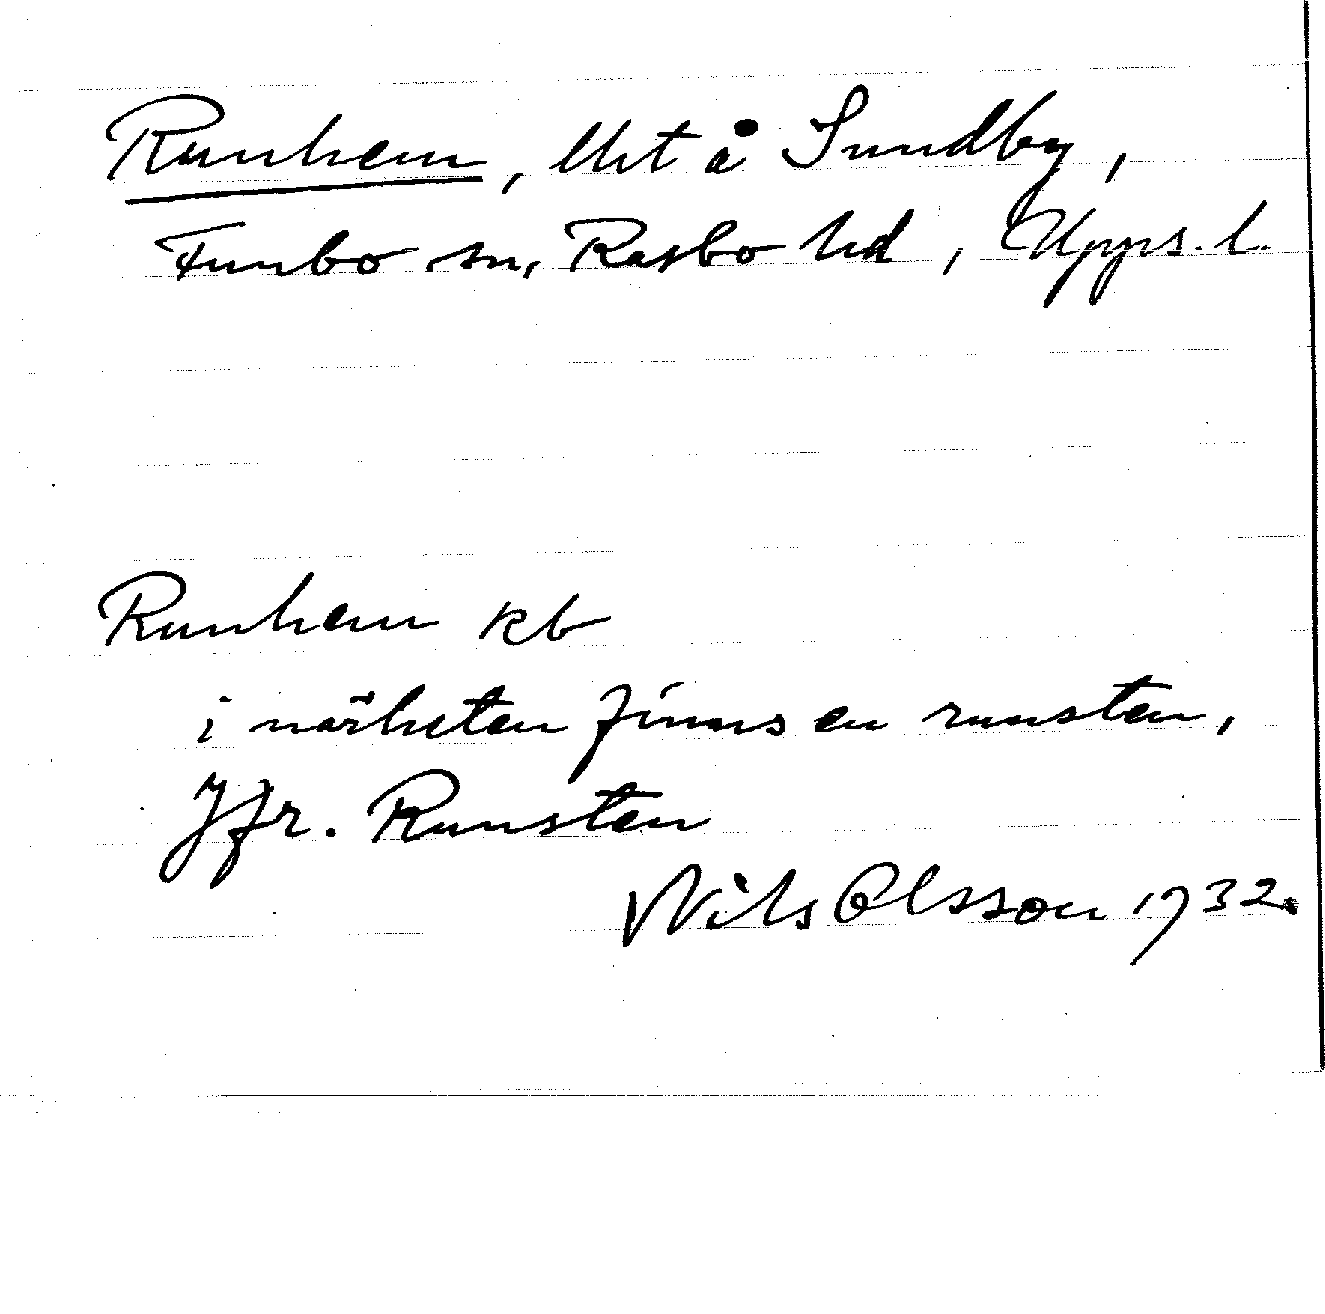 Runhem, lht å Sundby,
Funbo sn, Rasbo hd, Upps. l.
Runhem kb
i närheten finns en runsten,
Jfr. Runsten
Nils Olsson 1932.